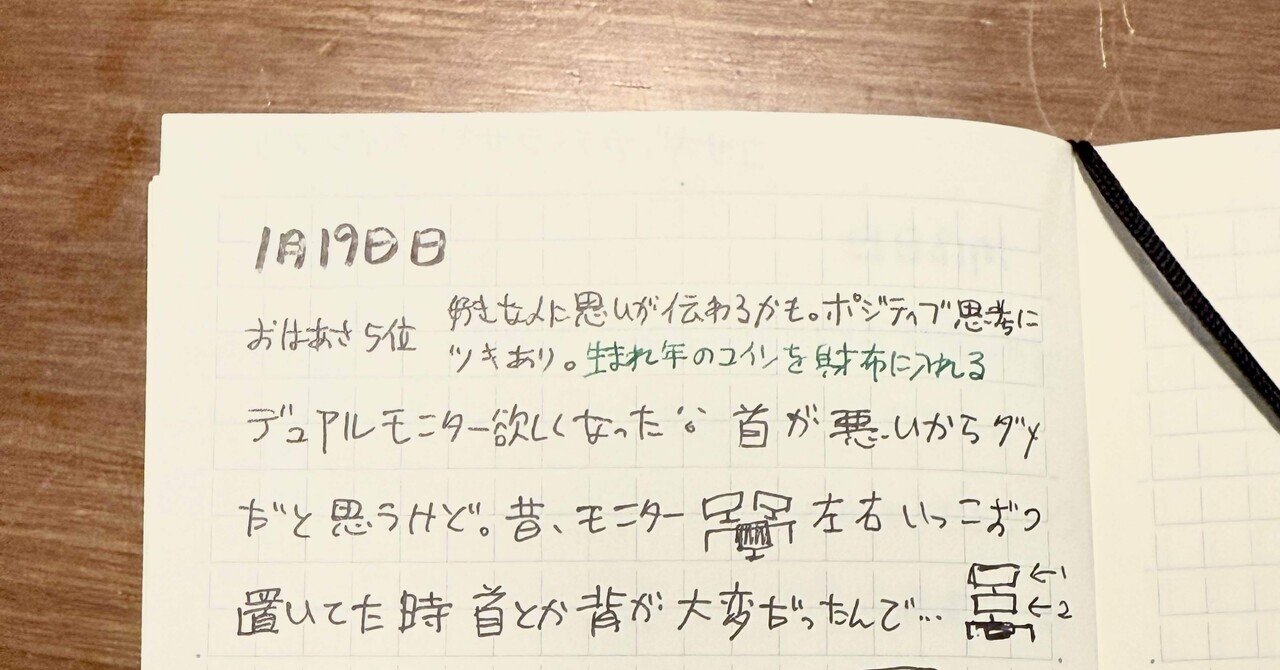 1月19日日
おはあさ5位
好きな人に思いが伝わるかも。ポジティブ思考に
ツキあり。生まれ年のコインを財布に入れる
デュアルモニター欲しくなったな 首が悪いからダメ
だと思うけど。昔、モニター 左右いっこずつ
置いてた時 首とか背が大変だったんで…
←1
←2